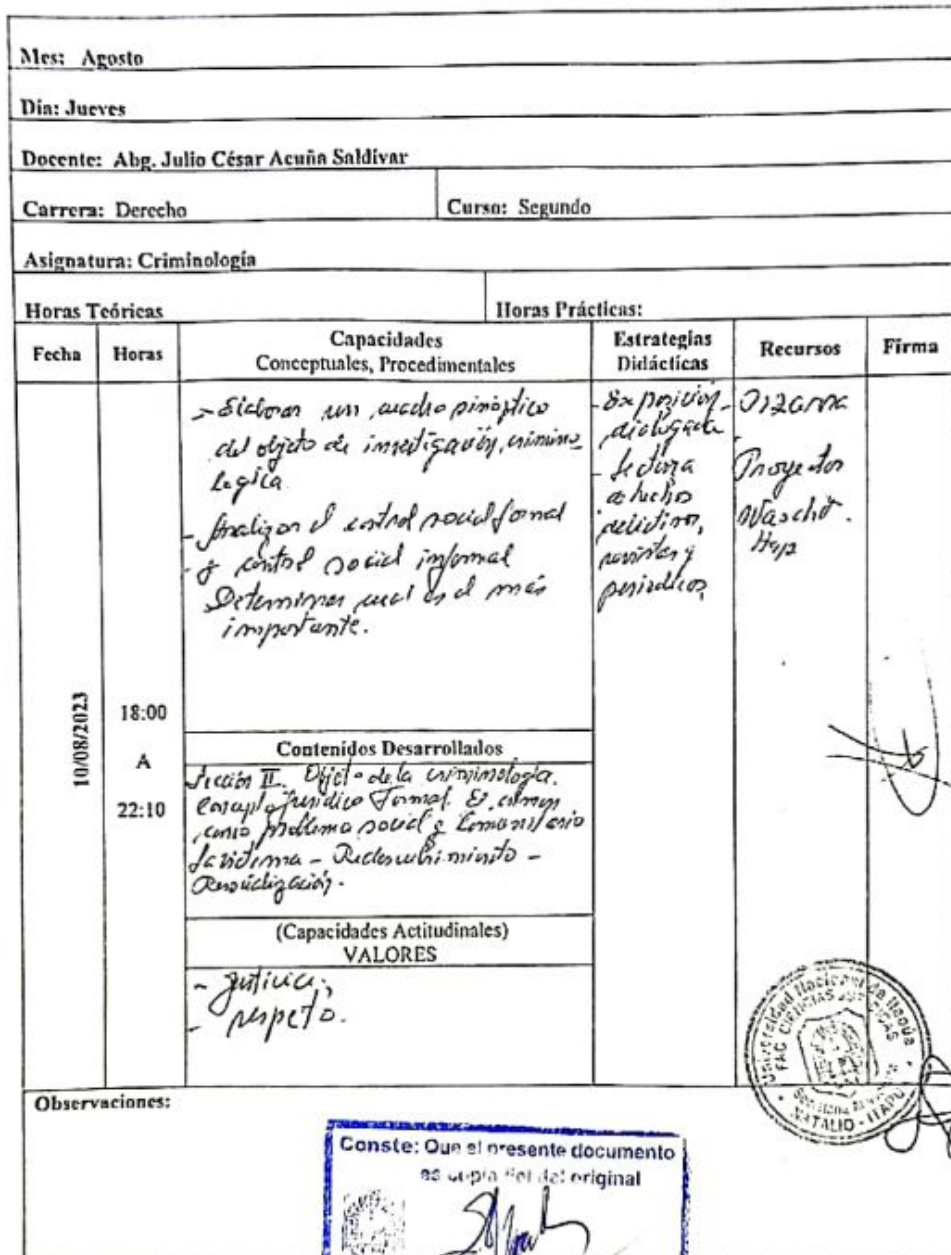 Mes: Agosto
Dia: Jueves
Docente: Abg. Julio César Acuña Saldívar
Carrera: Derecho
Curso: Segundo
Asignatura: Criminología
Horas Teóricas
Horas Prácticas:
Fecha
Horas
Capacidades
Conceptuales, Procedimentales
Estrategias
Didácticas
Recursos
Firma
10/08/2023
18:00
A
22:10
- Elaborar un cuadro sinóptico
del objeto de investigación crimino
logica
- Analizar el control social formal
y control social informal
Determinar cual es el más
importante.
- Exposición
dialogada
- Lectura
de hechos
delictivos,
revistas y
periódicos
- Pizarra
Proyector
Contenidos Desarrollados
Sección II. Objeto de la criminología.
Concepto Jurídico Formal. El crimen
como problema social y Comunitario
La víctima - Redescubrimiento -
Resocialización.
(Capacidades Actitudinales)
VALORES
- Justicia;
- respeto.
Universidad Nacional de Itapúa
FAC. CIENCIAS JURÍDICAS
NATALIO - ITAPÚA
Observaciones:
Conste: Que el presente documento
es copia fiel del original